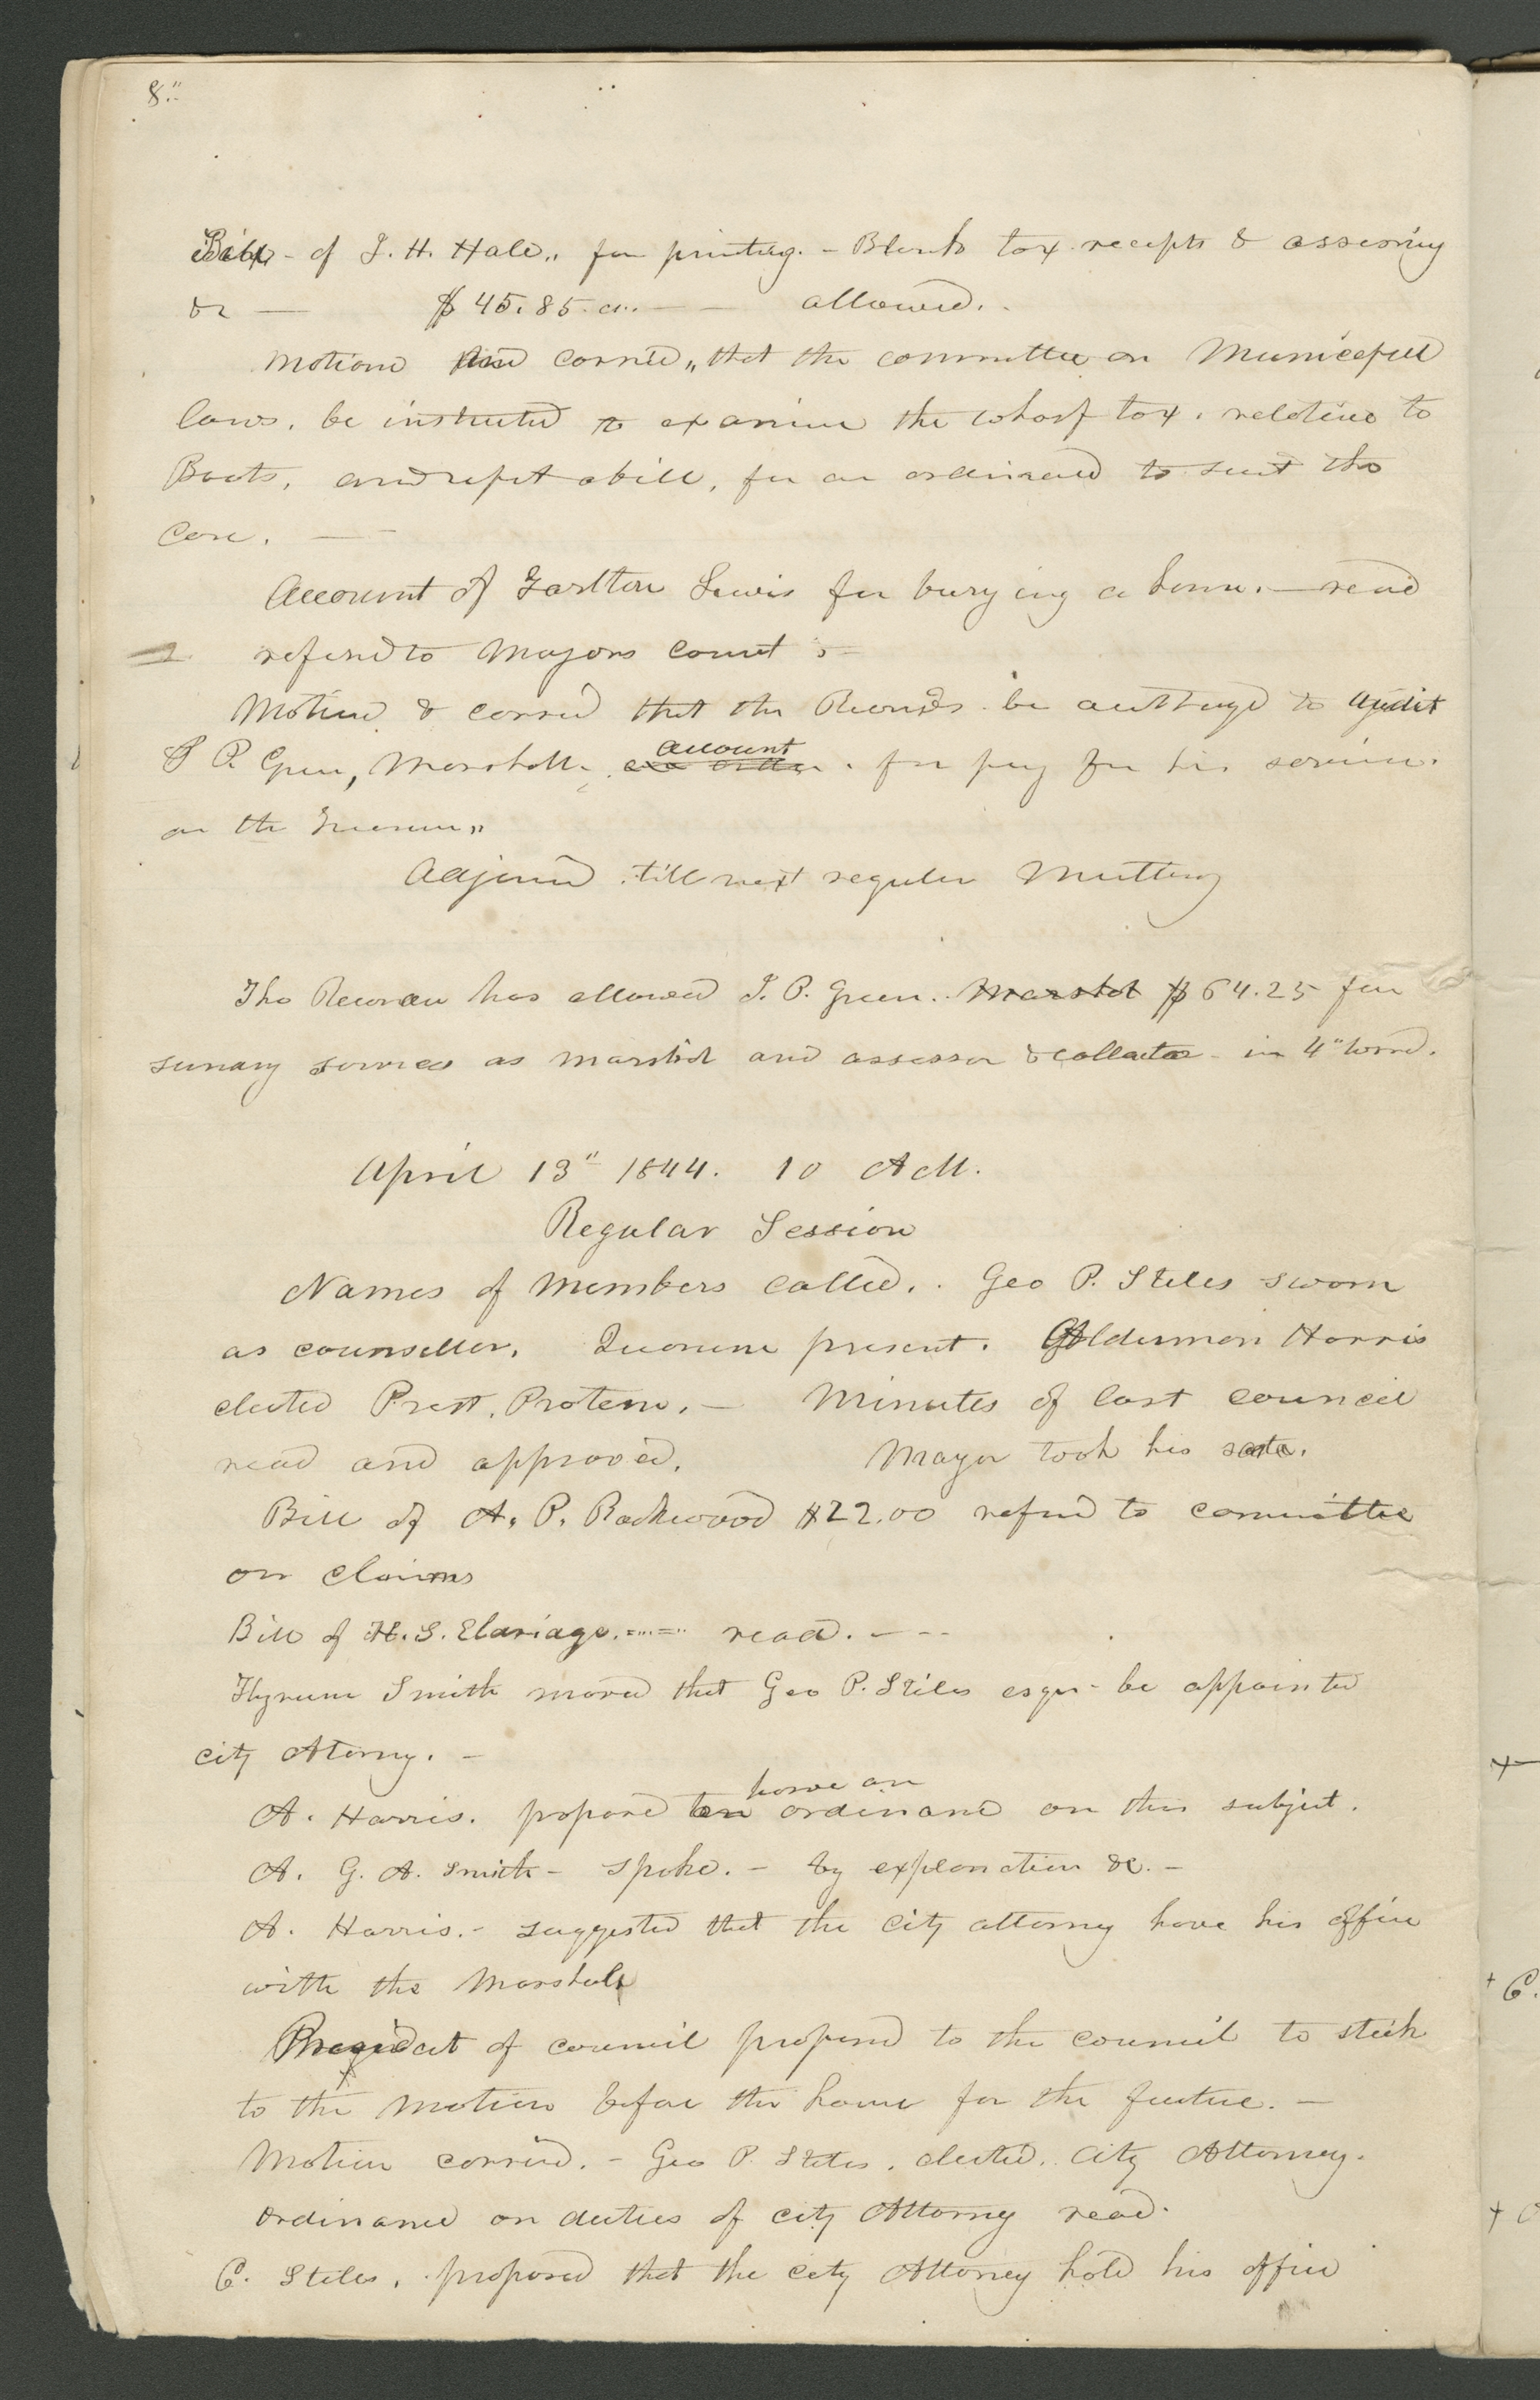 8."
Bill - of J. H. Hale,, for printing. - Blank tax receipts & assessing
&c — $45.85. — allowed.
motiond and carried,, that the committee on Municipall
laws. be instructed to examine the wharf tax. relative to
Boats. and report a bill, for an ordinance to suit the
case. —
Account of Tarlton Lewis for burying a horse. — read
referred to Mayors Court :-
Motiond & carrid that the Recorder. be authorized to audit
J P. Green, Marshall. account for pay for his services.
on the Treasury,,
Adjournd till next regular Meetting
The Recorder has allowed J. P. Green. Marshal $64.25 for
sundry services as marshal and assessor & collector in 4" ward.
April 13" 1844. 10 A M.
Regular Session
Names of Members called. . Geo P. Stiles sworn
as counseller. Quorum present. Alderman Harris
elected Prest. Protem. — Minutes of last council
read and approved. Mayor took his seat.
Bill of A. P. Rockwood $22.00 referd to committee
on claims
Bill of H. S. Eldriage. read. - - -
Hyrum Smith moved that Geo P. Stiles esqr - be appointed
city Atorny. -
have an
A. Harris. proposed ordinance on this subject.
A. G. A. Smith - spoke. - by explanation &c. -
A. Harris. - suggested that the City attorny have his office
with the Marshall
President of council proposed to the council to stick
to the motion before the house for the future. —
Motion carried. - Geo P. Stiles. elected. City Attorney.
ordinance on duties of city Attorny read.
C. Stiles. proposed that the city Attorney hold his office